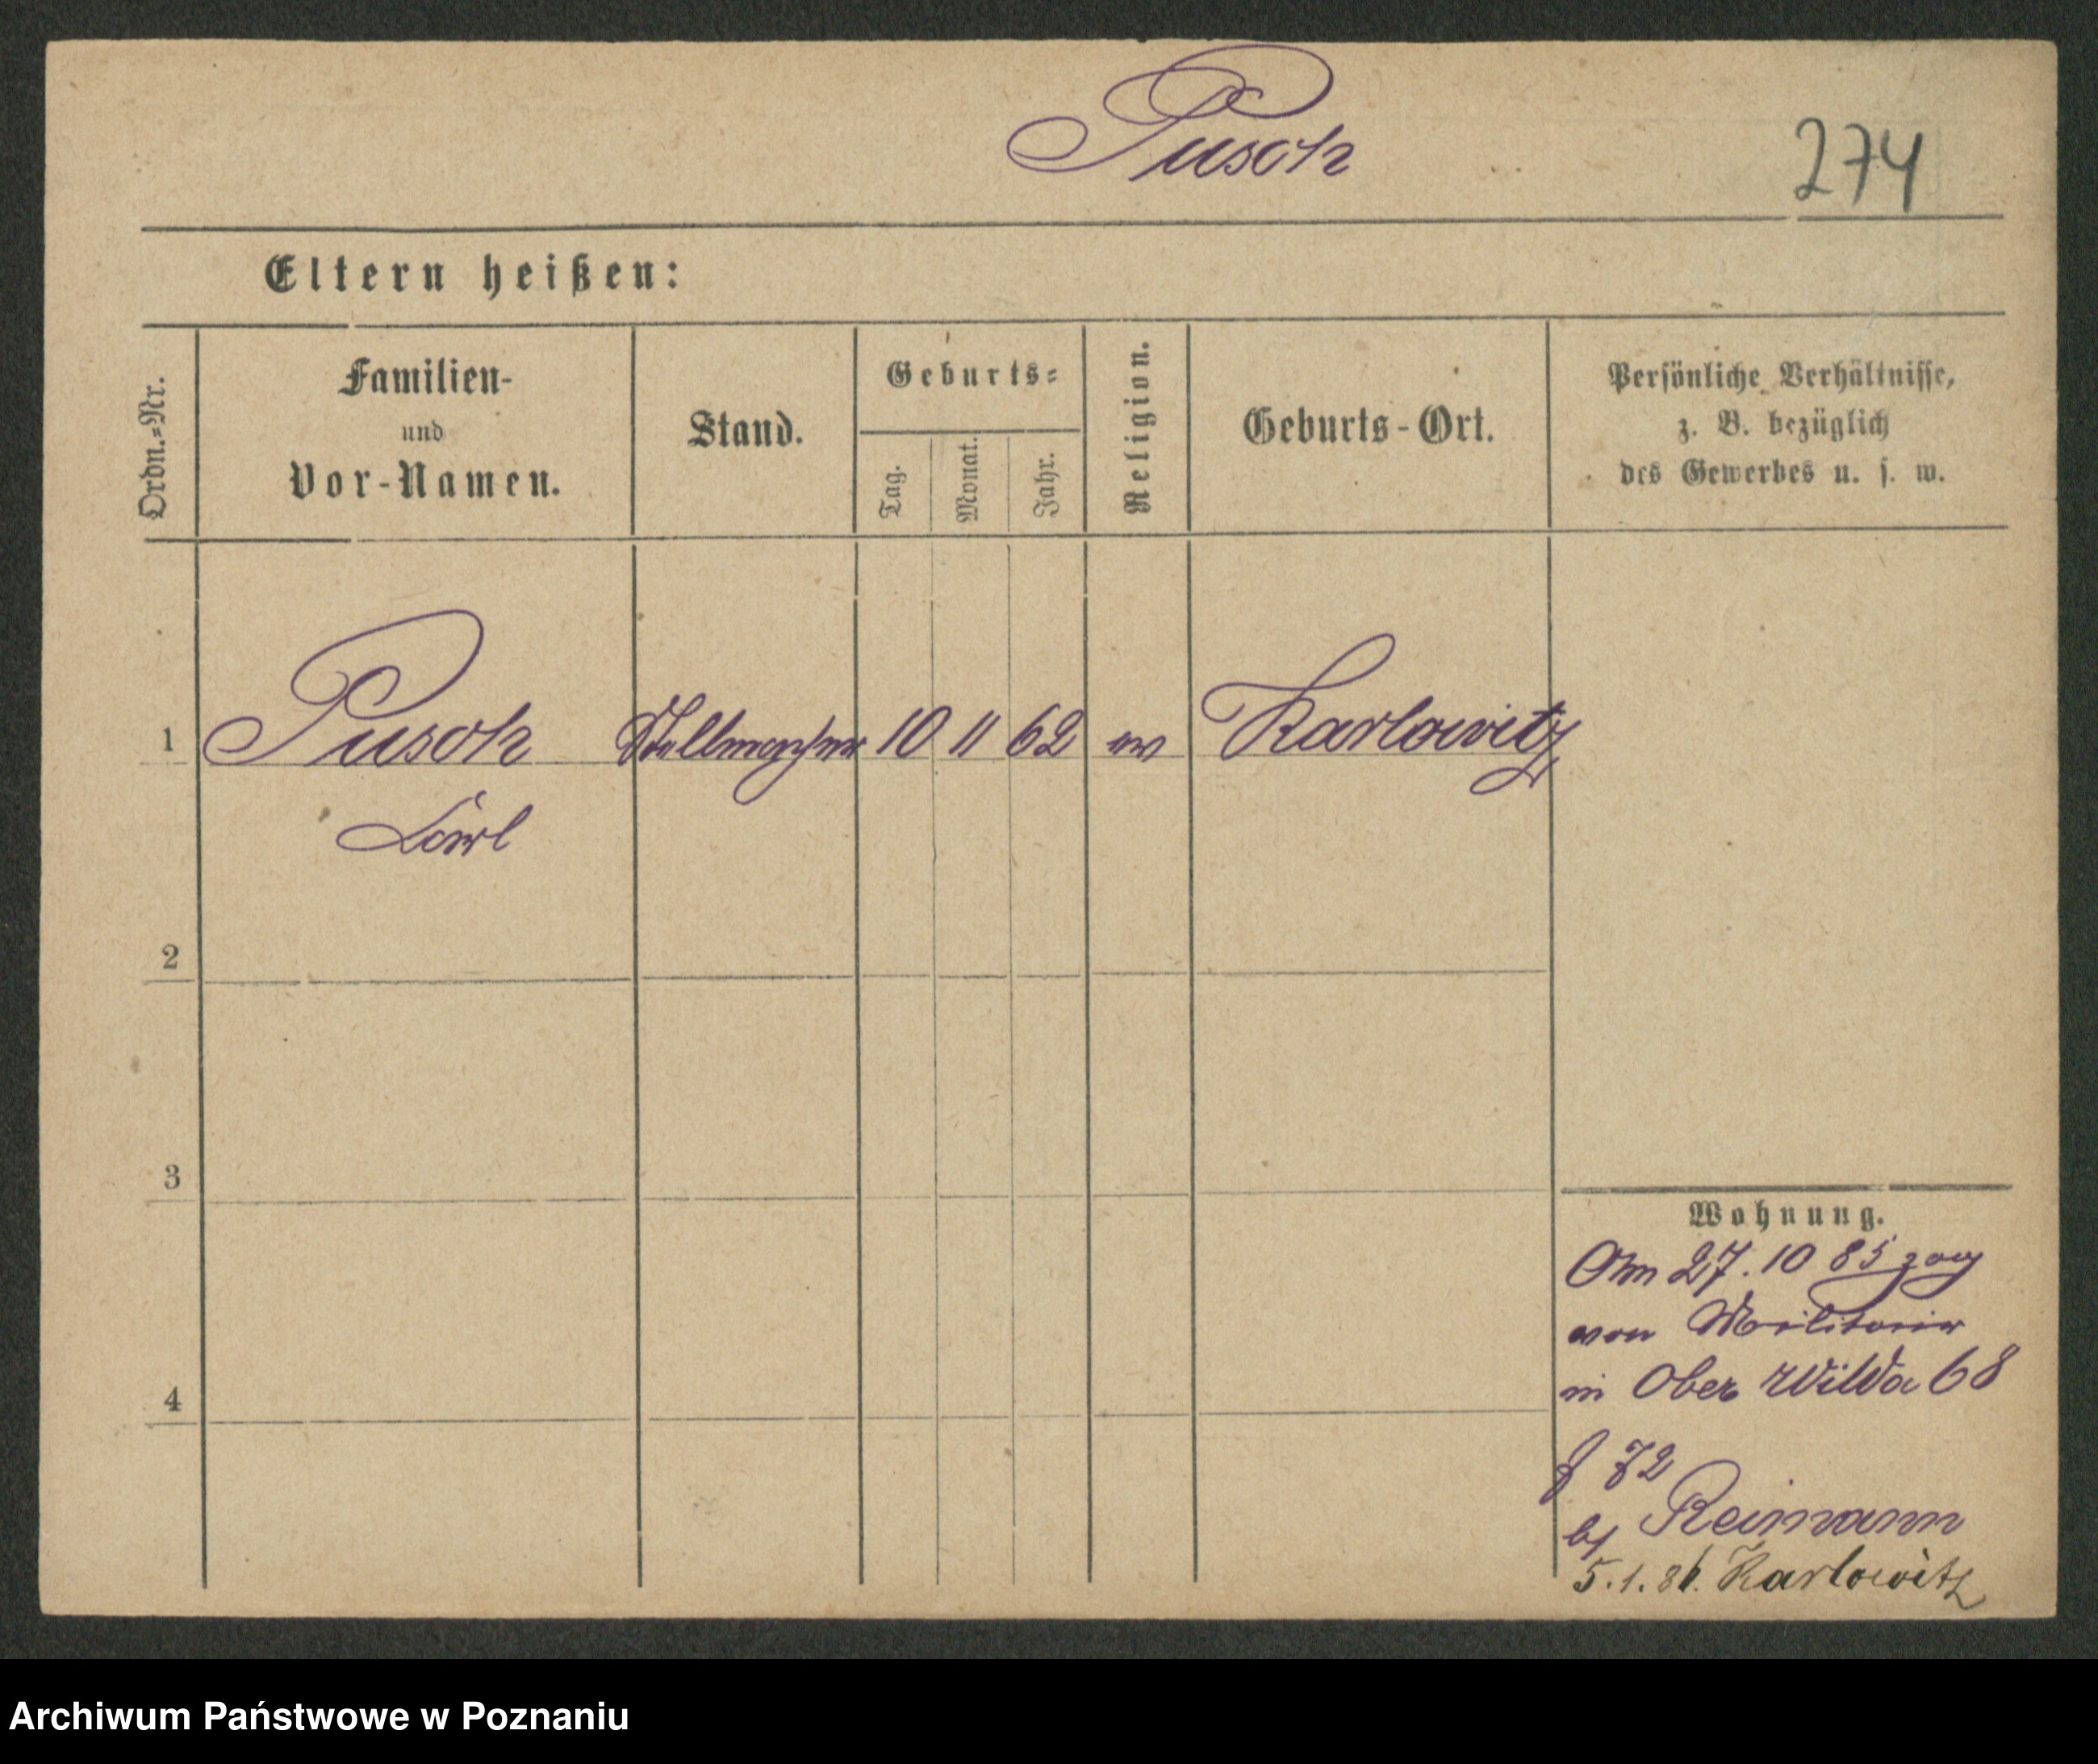 Pusch
274
Eltern heißen:
Ordn.-Nr.
Familien-
und
Vor-Namen.
Stand.
Geburts-
Tag.
Monat.
Jahr.
Religion.
Geburts-Ort.
Persönliche Verhältnisse,
z. B. bezüglich
des Gewerbes u. s. w.
1 Pusch Stellmacher 10 11 62 ev Karlowitz
Carl
2
3
4
Wohnung.
Am 27. 10 85 zog
von Militair
in Ober Wilda 68
72
bj Reimann
5.1.86. Karlowitz
Archiwum Państwowe w Poznaniu